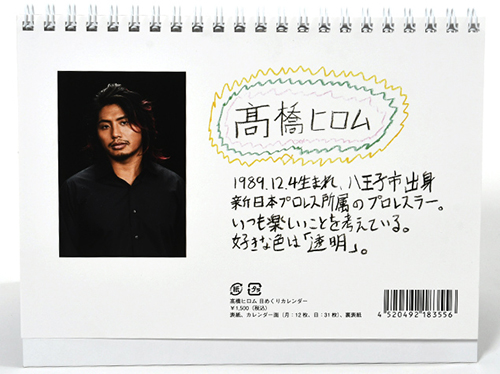 髙橋ヒロム
1989.12.4生まれ、八王子市出身
新日本プロレス所属のプロレスラー。
いつも楽しいことを考えている。
好きな色は「透明」。
紙 プラ
髙橋ヒロム 日めくりカレンダー
¥1,500(税込)
表紙、カレンダー面(月:12枚、日:31枚)、裏表紙
4 520492 183556